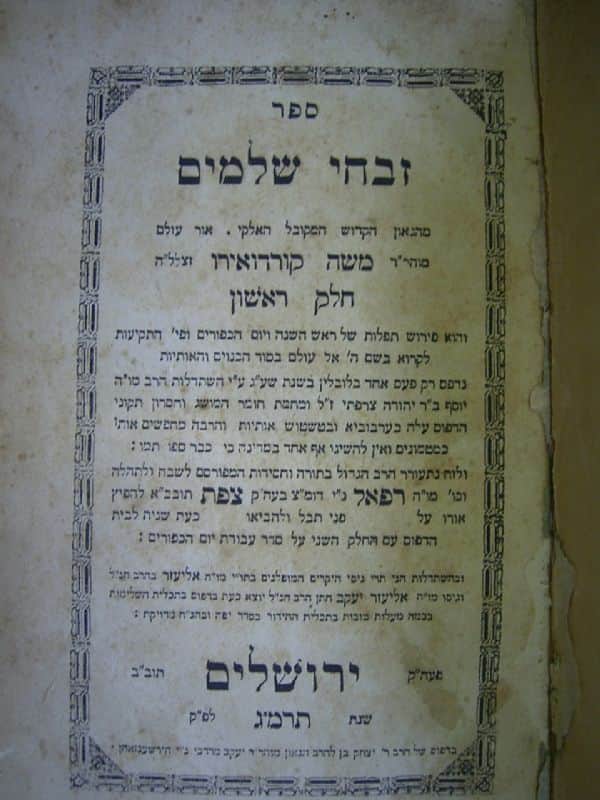 ספר
זבחי שלמים
מהגאון הקדוש המקובל האלקי. אור עולם
מוהר״ר משה קורדואירו זצלל״ה
חלק ראשון
והוא פירוש תפלות של ראש השנה ויום הכפורים ופי׳ התקיעות
לקרוא בשם ה׳ אל עולם בסוד הכנוים והאותיות
נדפס רק פעם אחד בלובלין בשנת שע״ג ע״י השתדלות הרב מו״ה
יוסף ב״ר יהודה צרפתי ז״ל ומחמת חומר המושג וחסרון תקוני
הדפוס עלה בערבוביא ובטשטוש אותיות והרבה מחפשים אותו
כמטמונים ואין להשיגו אף אחד במדינה כי כבר ספו תמו:
ולזה נתעורר הרב הגדול בתורה וחסידות המפורסם לשבח ולתהלה
וכו׳ מו״ה רפאל נ״י דומ״צ בעה״ק צפת תובב״א להפיץ
אורו על פני תבל ולהביאו כעת שנית לבית
הדפוס עם החלק השני על סדר עבודת יום הכפורים:
ובהשתדלות הני תרי גיסי היקרים המופלגים בתו״י מו״ה אליעזר בהרב הנ״ל
וגיסו מו״ה אליעזר יעקב חתן הרב הנ״ל יוצא כעת בדפוס בתכלית השלימות
בכמה מעלות טובות בתכלית ההידור בסדר יפה ובהג״ה מדויקת:
פעה״ק ירושלים תוב״ב
שנת תרמ״ג לפ״ק
בדפוס של הרב ר׳ יצחק בן להרב הגאון מוהר״ר יעקב מרדכי נ״י הירשענזאהן